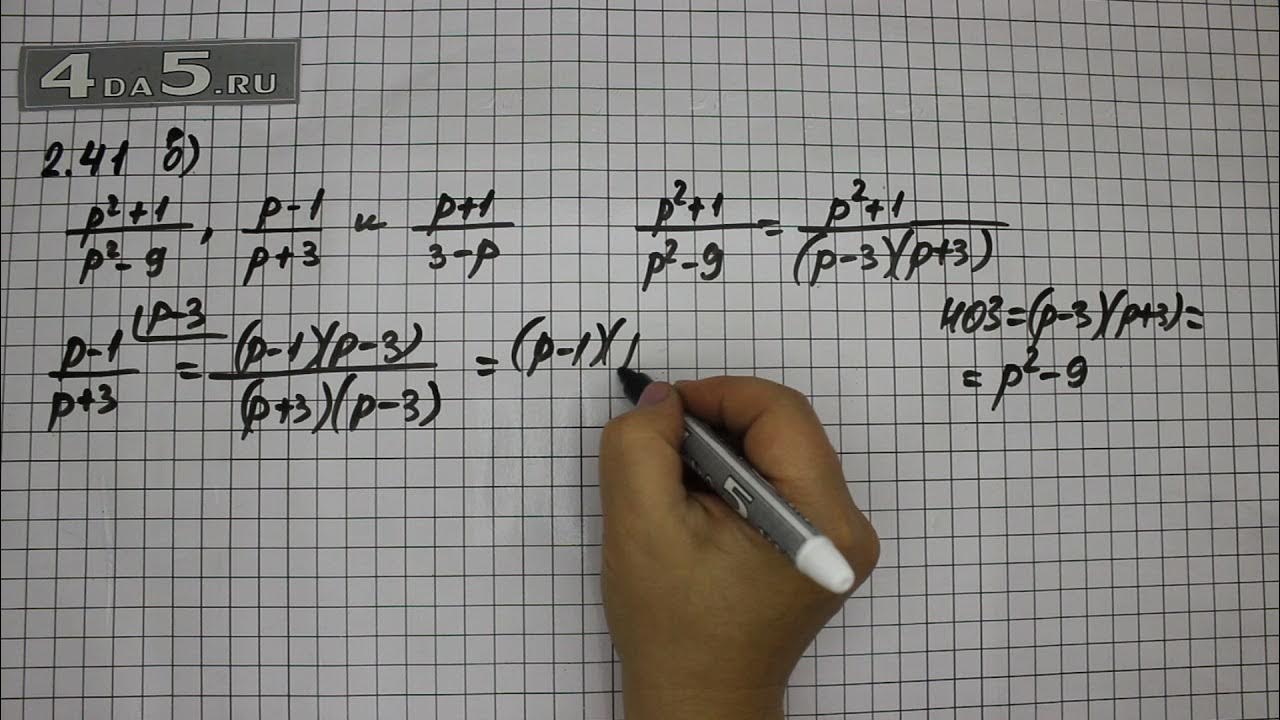 4DA5.RU
2.41 б)
p²+1/p²-9, p-1/p+3 и p+1/3-p
p²+1/p²-9 = p²+1/(p-3)(p+3)
НОЗ=(p-3)(p+3)=
= p²-9
p-1/p+3 (p-3 = (p-1)(p-3)/(p+3)(p-3) = (p-1)(
5